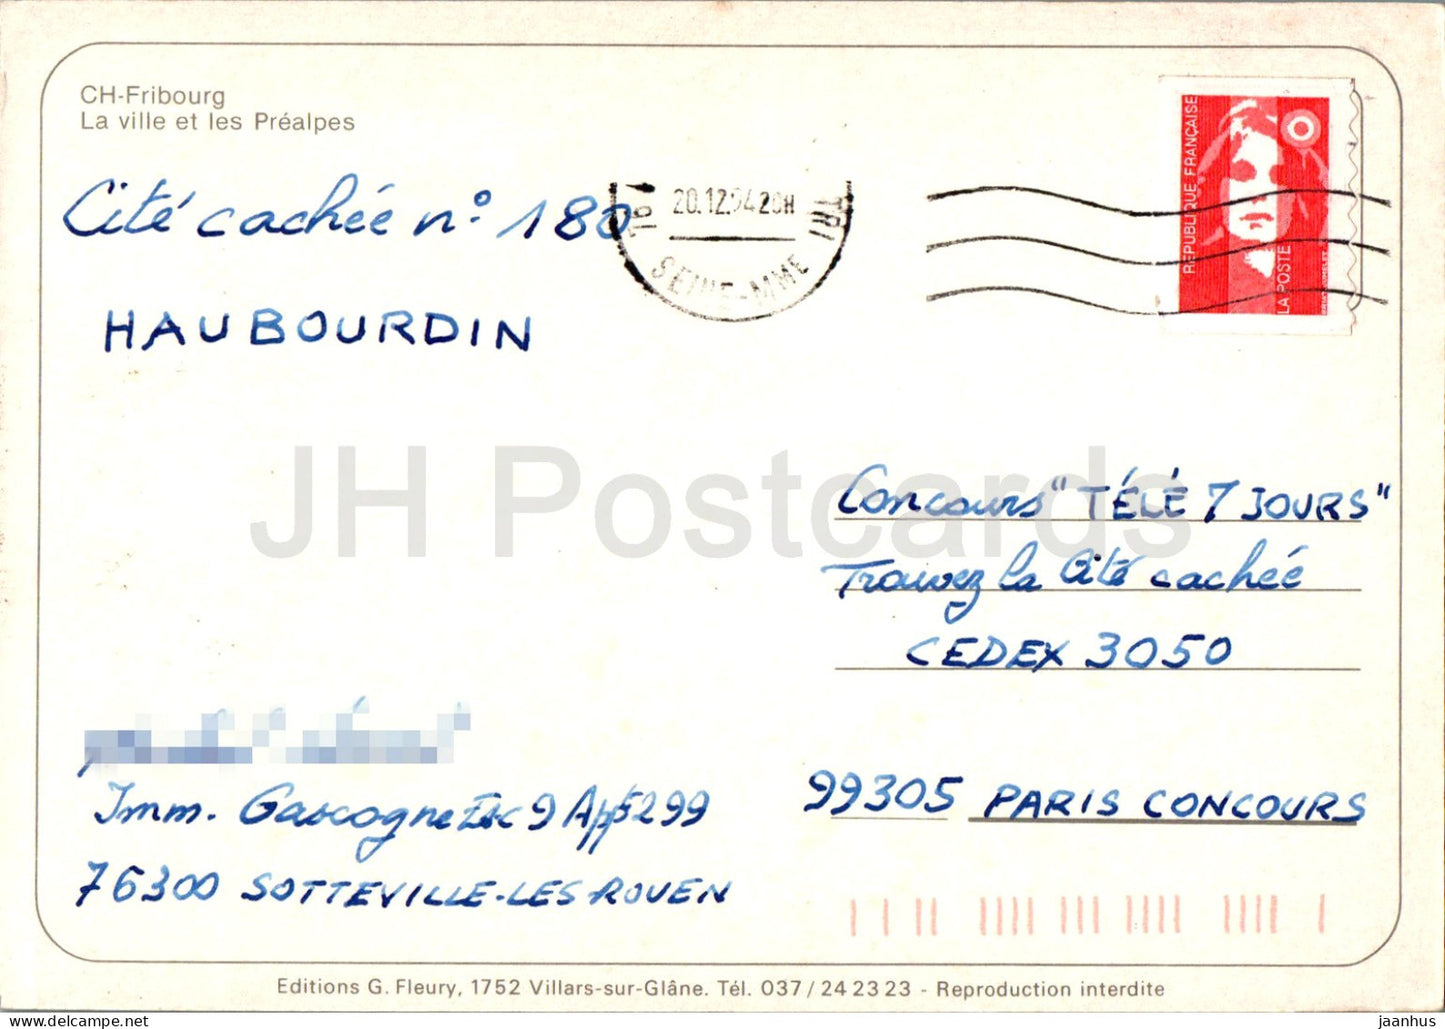 CH-Fribourg
La ville et les Préalpes
Cité cachée n° 180
HAUBOURDIN
20.12.94 20H
TRI
SEINE-MME
REPUBLIQUE FRANÇAISE
LA POSTE
JH Postcards
Concours "TÉLÉ 7 JOURS"
Trouvez la Cité cachée
CEDEX 3050
99305 PARIS CONCOURS
Imm. Gascogne Esc 9 App 5299
76300 SOTTEVILLE-LES ROUEN
Editions G. Fleury, 1752 Villars-sur-Glâne. Tél. 037/24 23 23 - Reproduction interdite
jaanhus